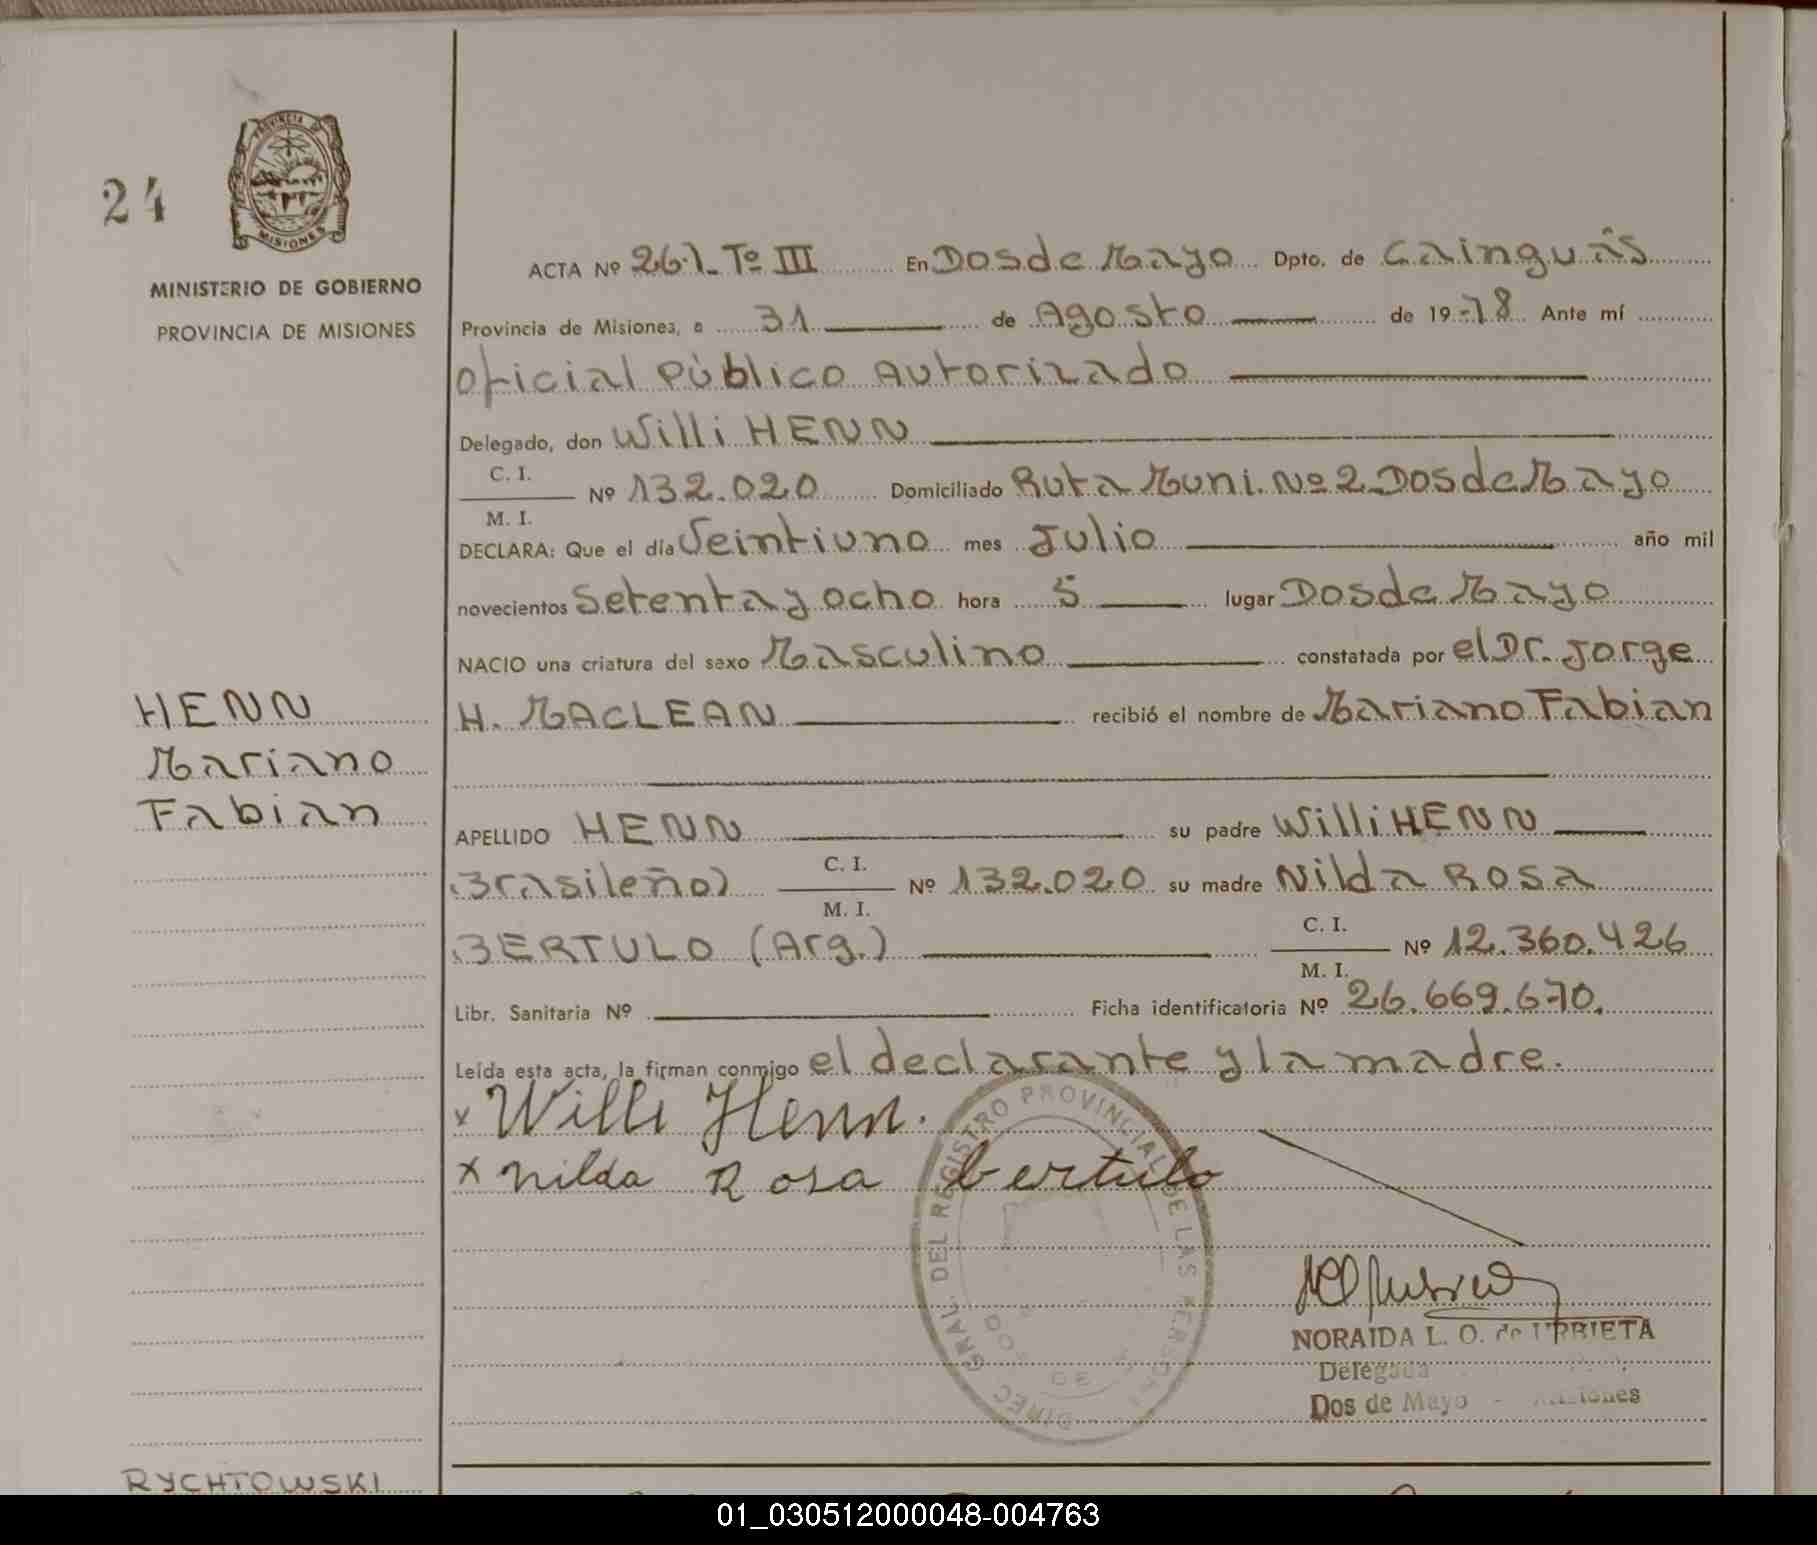 24
PROVINCIA DE
MISIONES
MINISTERIO DE GOBIERNO
PROVINCIA DE MISIONES
ACTA Nº 261. Tº III En Dos de Mayo Dpto. de Cainguás
Provincia de Misiones, a 31 de Agosto de 19 78 Ante mí
Oficial Público Autorizado
Delegado, don Willi HENN
C. I.
Nº 132.020 Domiciliado Ruta Muni. Nº 2 Dos de Mayo
M. I.
DECLARA: Que el día Veintiuno mes Julio año mil
novecientos Setenta y ocho hora 5 lugar Dos de Mayo
NACIO una criatura del sexo Masculino constatada por el Dr. Jorge
H. MACLEAN recibió el nombre de Mariano Fabian
HENN
Mariano
Fabian
APELLIDO HENN su padre Willi HENN
(Brasileño) C. I. Nº 132.020 su madre Nilda Rosa
M. I.
BERTULO (Arg.) C. I. Nº 12.360.426
M. I.
Libr. Sanitaria Nº Ficha identificatoria Nº 26.669.670.
Leída esta acta, la firman conmigo el declarante y la madre.
x Willi Henn.
x Nilda Rosa bertulo
DIREC GRAL. DEL REGISTRO PROVINCIAL DE LAS PERSON
NORAIDA L. O. de URBIETA
Delegada
Dos de Mayo - Misiones
RYCHTOWSKI
01_030512000048-004763